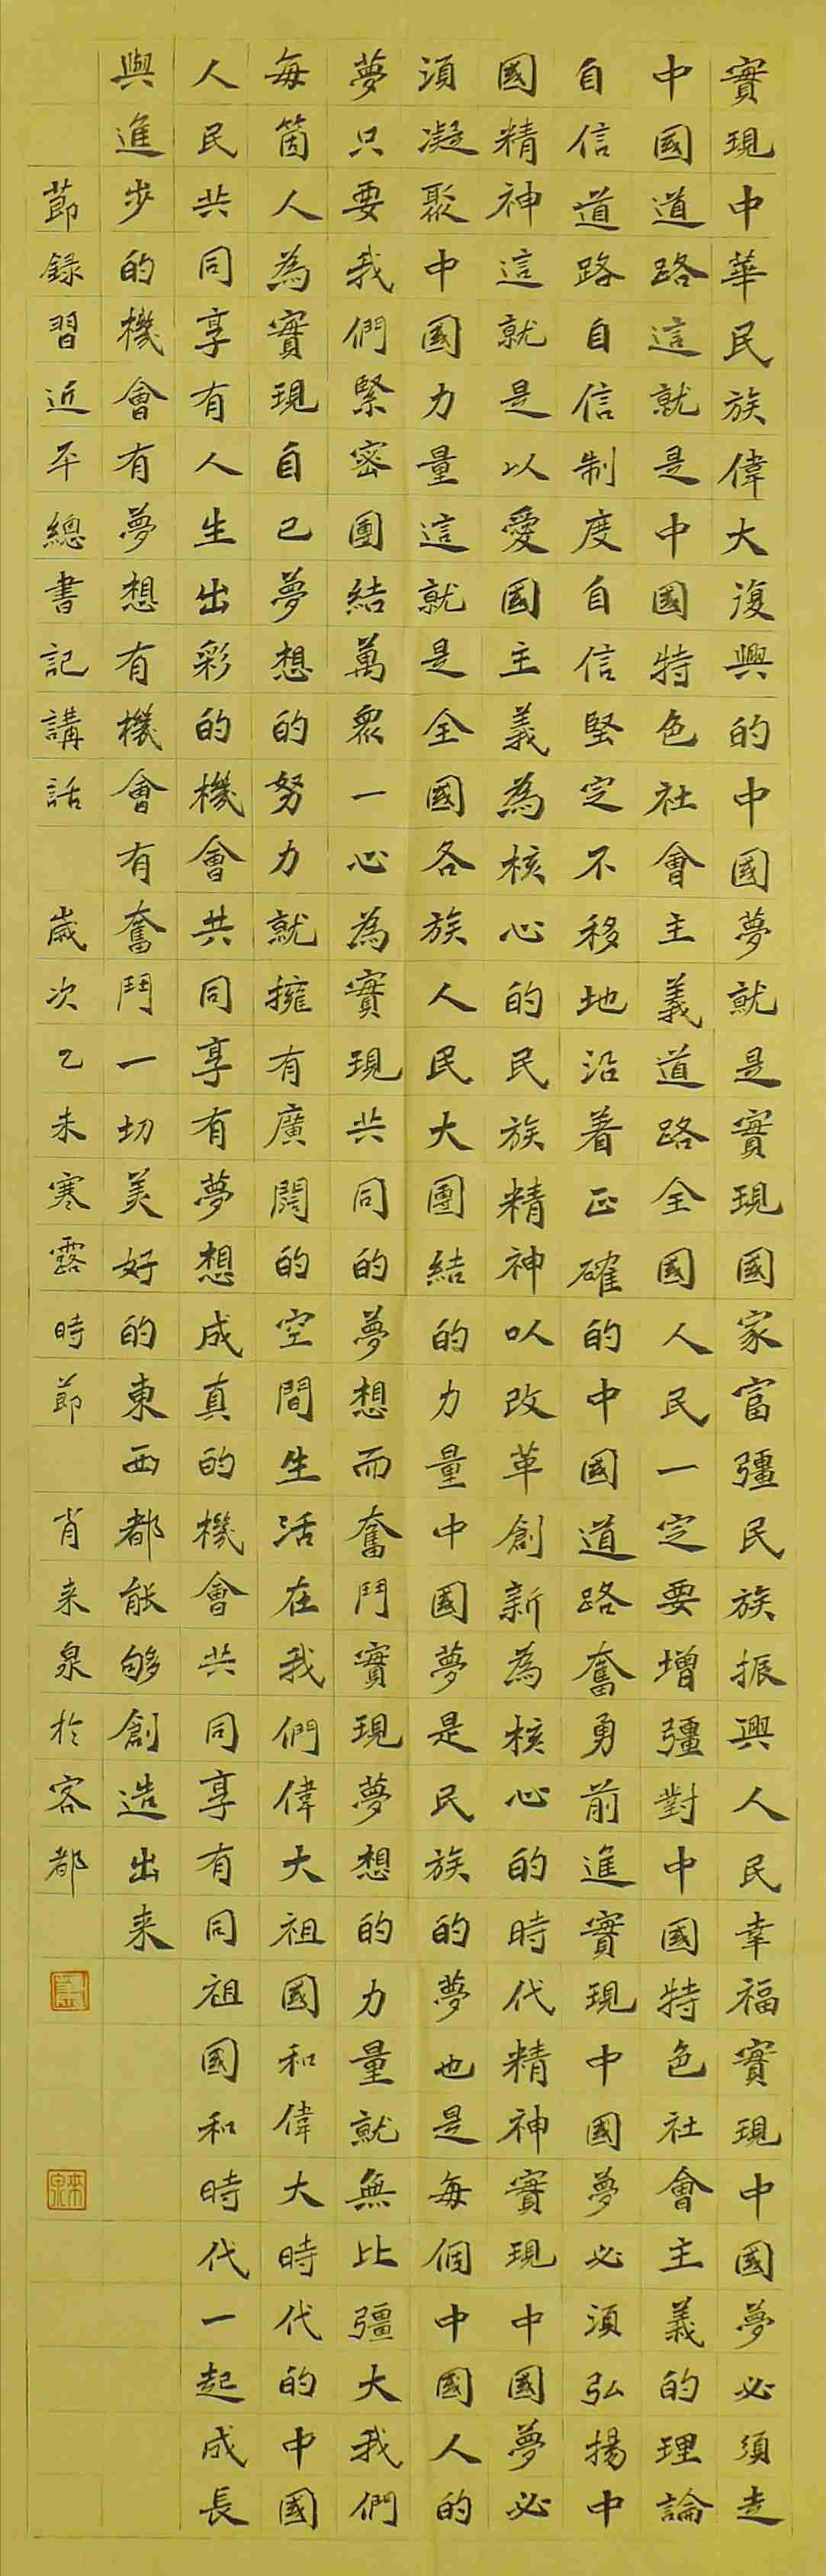 實現中華民族偉大復興的中國夢就是實現國家富彊民族振興人民幸福實現中國夢必須走
中國道路這就是中國特色社會主義道路全國人民一定要增彊對中國特色社會主義的理論
自信道路自信制度自信堅定不移地沿着正確的中國道路奮勇前進實現中國夢必須弘揚中
國精神這就是以愛國主義為核心的民族精神以改革創新為核心的時代精神實現中國夢必
須凝聚中國力量這就是全國各族人民大團結的力量中國夢是民族的夢也是每個中國人的
夢只要我們緊密團結萬眾一心為實現共同的夢想而奮鬥實現夢想的力量就無比彊大我們
每箇人為實現自己夢想的努力就擁有廣闊的空間生活在我們偉大祖國和偉大時代的中國
人民共同享有人生出彩的機會共同享有夢想成真的機會共同享有同祖國和時代一起成長
與進步的機會有夢想有機會有奮鬥一切美好的東西都能夠創造出来
節錄習近平總書記講話 歲次乙未寒露時節 肖来泉於客都